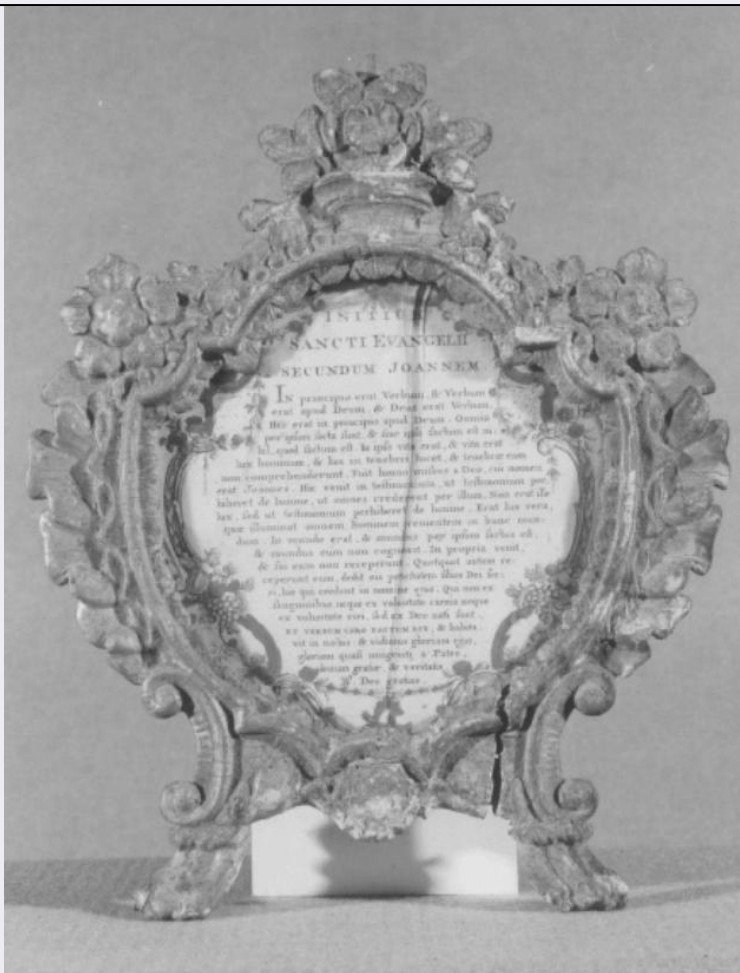 INITIUM
SANCTI EVANGELII
SECUNDUM JOANNEM
IN principio erat Verbum, & Verbum
erat apud Deum, & Deus erat Verbum.
Hoc erat in principio apud Deum. Omnia
per ipsum facta sunt, & sine ipso factum est ni-
hil, quod factum est. In ipso vita erat, & vita erat
lux hominum, & lux in tenebris lucet, & tenebræ eam
non comprehenderunt. Fuit homo missus a Deo, cui nomen
erat Joannes. Hic venit in testimonium, ut testimonium per-
hiberet de lumine, ut omnes crederent per illum. Non erat ille
lux, sed ut testimonium perhiberet de lumine. Erat lux vera,
quæ illuminat omnem hominem venientem in hunc mun-
dum. In mundo erat, & mundus per ipsum factus est,
& mundus eum non cognovit. In propria venit,
& sui eum non receperunt. Quotquot autem re-
ceperunt eum, dedit eis potestatem filios Dei fie-
ri, his qui credunt in nomine ejus. Qui non ex
sanguinibus neque ex voluntate carnis neque
ex voluntate viri, sed ex Deo nati sunt.
ET VERBUM CARO FACTUM EST, & habita-
vit in nobis: & vidimus gloriam ejus,
gloriam quasi unigeniti a Patre,
plenum gratiæ & veritatis.
R. Deo gratias.